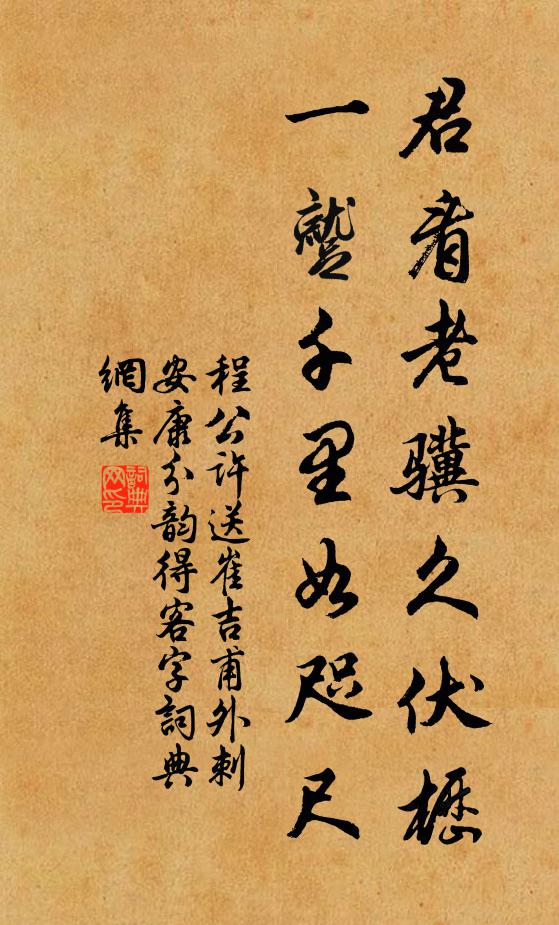 君看老驥久伏櫪
一蹙千里如咫尺
程公許送崔吉甫外刺
安康分韵得客字詞典
網集
詞典
网印